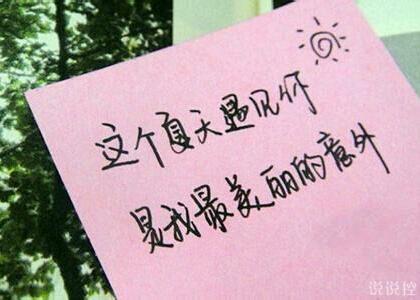 这个夏天遇见你
是我最美丽的意外
说说控